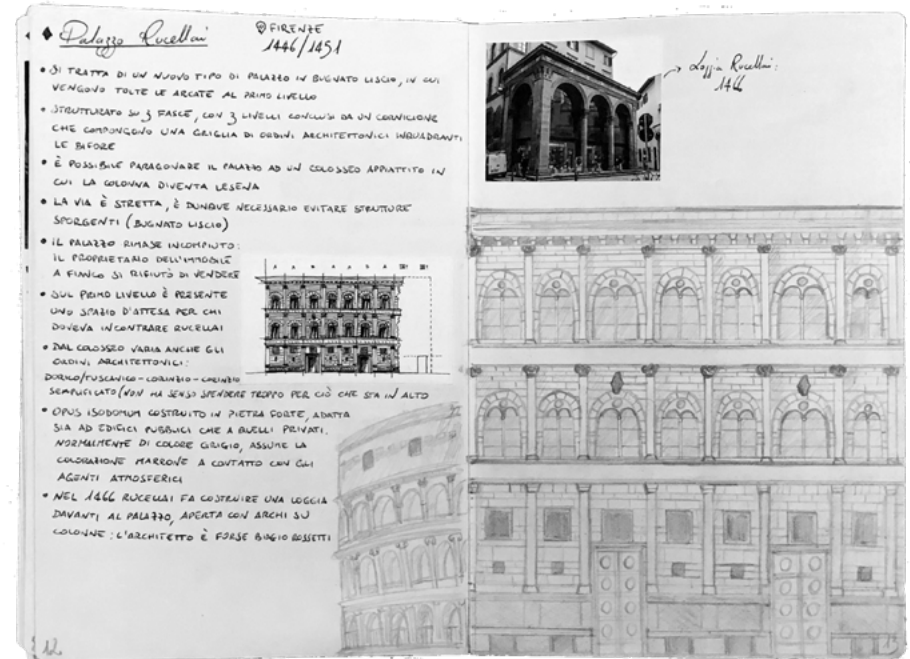 Palazzo Rucellai
FIRENZE
1446/1451
• SI TRATTA DI UN NUOVO TIPO DI PALAZZO IN BUGNATO LISCIO, IN CUI
VENGONO TOLTE LE ARCATE AL PRIMO LIVELLO
• STRUTTURATO SU 3 FASCE, CON 3 LIVELLI CONCLUSI DA UN CORNICIONE
CHE COMPONGONO UNA GRIGLIA DI ORDINI ARCHITETTONICI INQUADRANTI
LE BIFORE
• È POSSIBILE PARAGONARE IL PALAZZO AD UN COLOSSEO APPIATTITO IN
CUI LA COLONNA DIVENTA LESENA
• LA VIA È STRETTA, È DUNQUE NECESSARIO EVITARE STRUTTURE
SPORGENTI (BUGNATO LISCIO)
• IL PALAZZO RIMASE INCOMPIUTO:
IL PROPRIETARIO DELL'IMMOBILE
A FIANCO SI RIFIUTÒ DI VENDERE
• SUL PRIMO LIVELLO È PRESENTE
UNO SPAZIO D'ATTESA PER CHI
DOVEVA INCONTRARE RUCELLAI
• DAL COLOSSEO VARIA ANCHE GLI
ORDINI ARCHITETTONICI:
DORICO/TUSCANICO - CORINZIO - CORINZIO
SEMPLIFICATO (NON HA SENSO SPENDERE TROPPO PER CIÒ CHE STA IN ALTO
• OPUS ISODOMUM COSTRUITO IN PIETRA FORTE, ADATTA
SIA AD EDIFICI PUBBLICI CHE A QUELLI PRIVATI.
NORMALMENTE DI COLORE GRIGIO, ASSUME LA
COLORAZIONE MARRONE A CONTATTO CON GLI
AGENTI ATMOSFERICI
• NEL 1466 RUCELLAI FA COSTRUIRE UNA LOGGIA
DAVANTI AL PALAZZO, APERTA CON ARCHI SU
COLONNE: L'ARCHITETTO È FORSE BIAGIO ROSSETTI
12
Loggia Rucellai:
1466
13